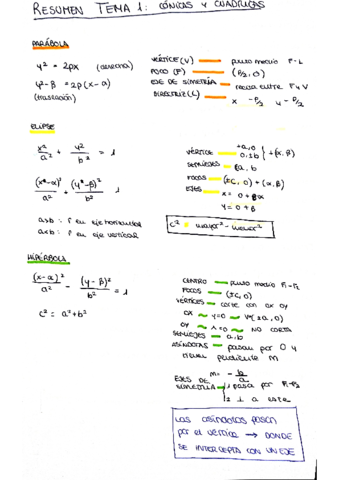 RESUMEN TEMA 1: CÓNICAS Y CUÁDRICAS
PARÁBOLA
y² = 2px (general)
y²-β = 2p(x-α)
(traslación)
VÉRTICE (V) — punto medio F-L
FOCO (F) — (P/2, 0)
EJE DE SIMETRÍA — recta entre F y V
DIRECTRIZ (L) — x -P/2 y -P/2
ELIPSE
x²/a² + y²/b² = 1
(x-α)²/a² + (y-β)²/b² = 1
a>b: F en eje horizontal
a<b: F en eje vertical
VÉRTICE — ±a,0
0,±b } +(α,β)
SEMIEJES — a, b
FOCOS — (±C,0) + (α,β)
EJES — x = 0 + α
y = 0 + β
c² = mayor² - menor²
HIPÉRBOLA
(x-α)²/a² - (y-β)²/b² = 1
c² = a² + b²
CENTRO — punto medio F₁-F₂
FOCOS — (±C,0)
VÉRTICES — corte con OX OY
OX ~ y=0 ~ V(±a,0)
OY ~ x=0 ~ NO CORTA
SEMIEJES — a, b
ASÍNTOTAS — pasan por O y
tienen pendiente m
m = - b/a
EJES DE SIMETRÍA — 1 pasa por F₁-F₂
1 ⊥ a este
Las asíntotas pasan
por el vértice → DONDE
SE INTERCEPTA CON UN EJE